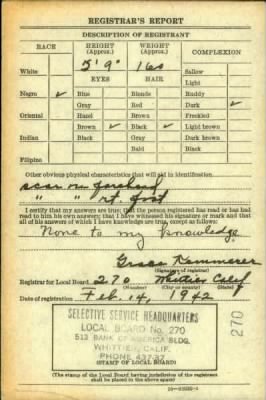 REGISTRAR'S REPORT
DESCRIPTION OF REGISTRANT
RACE HEIGHT (Approx.) WEIGHT (Approx.) COMPLEXION
5' 9" 160
White EYES HAIR Sallow
Light
Negro ✓ Blue Blonde Ruddy
Gray Red Dark ✓
Oriental Hazel Brown Freckled
Brown ✓ Black ✓ Light brown
Indian Black Gray Dark brown
Bald Black
Filipino
Other obvious physical characteristics that will aid in identification
scar on forehead
" " rt. foot
I certify that my answers are true; that the person registered has read or has had
read to him his own answers; that I have witnessed his signature or mark and that
all of his answers of which I have knowledge are true, except as follows:
None to my knowledge.
Grace Kammerer
(Signature of registrar)
Registrar for Local Board 270 Whittier Calif
(Number) (City or county) (State)
Date of registration Feb. 14, 1942
SELECTIVE SERVICE HEADQUARTERS
LOCAL BOARD NO. 270
513 BANK OF AMERICA BLDG.
WHITTIER, CALIF.
PHONE 437-37
(STAMP OF LOCAL BOARD)
270
(The stamp of the Local Board having jurisdiction of the registrant
shall be placed in the above space)